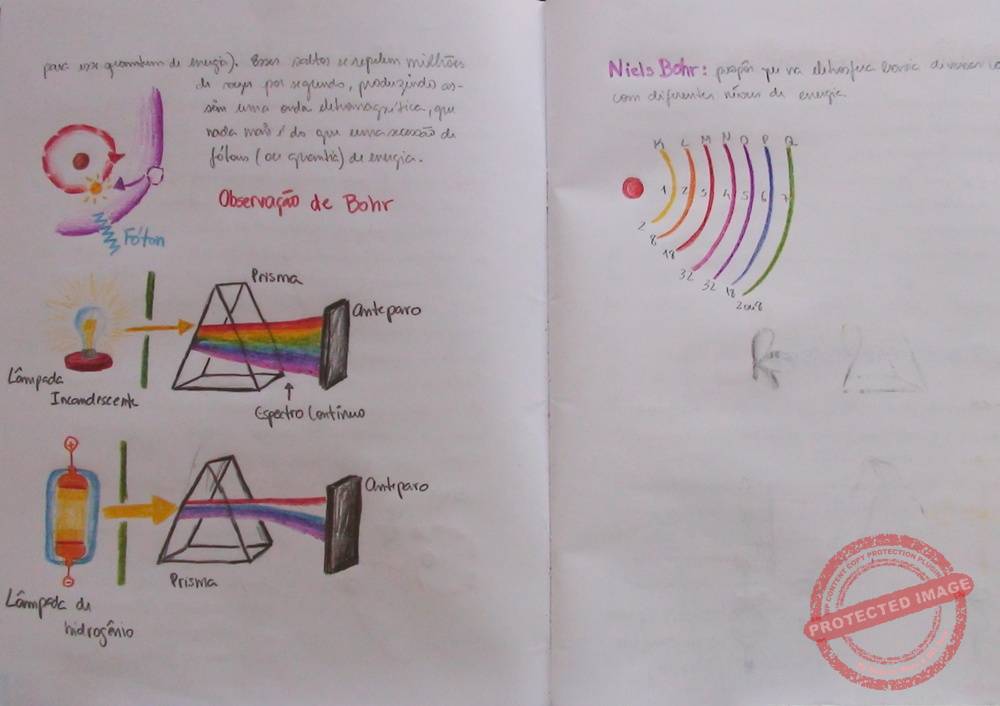 para esse quantum de energia). Esses saltos se repetem milhões
de vezes por segundo, produzindo as-
sim uma onda eletromagnética, que
nada mais é do que uma sucessão de
fótons (ou quanta) de energia.
Fóton
Observação de Bohr
Prisma
Anteparo
Lâmpada
Incandescente
Espectro Contínuo
Anteparo
Prisma
Lâmpada de
hidrogênio
Niels Bohr: propôs que na eletrosfera havia diversas
com diferentes níveis de energia.
K L M N O P Q
1 2 3 4 5 6 7
2 8 18 32 32 18 2 ou 8
PROTECTED IMAGE